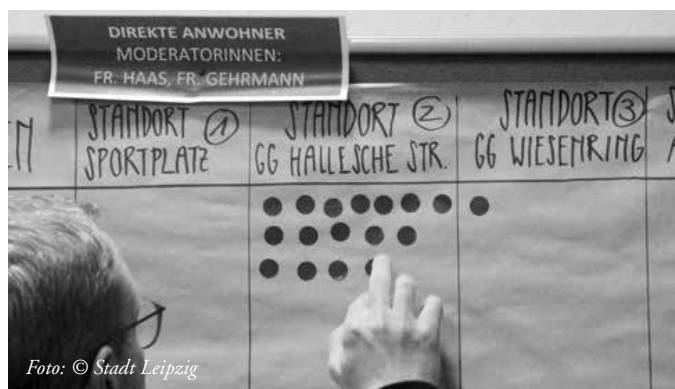 DIREKTE ANWOHNER
MODERATORINNEN:
FR. HAAS, FR. GEHRMANN
EN
STANDORT 1
SPORTPLATZ
STANDORT 2
GG HALLESCHE STR.
STANDORT 3
GG WIESENRING
S
Foto: © Stadt Leipzig